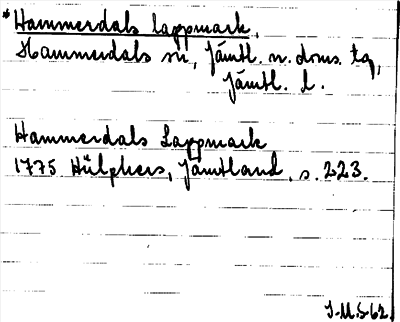 *Hammerdals lappmark,
Hammerdals sn, Jämtl. n. doms. tg,
Jämtl. l.
Hammerdals Lappmark
1775 Hülphers, Jämtland, s. 223.
J.M.S-62